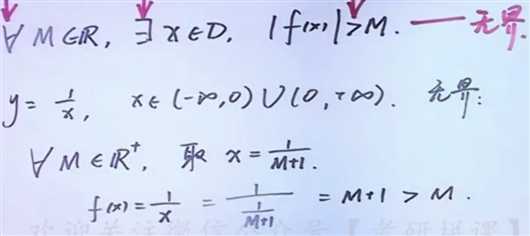 ∀ M∈R, ∃ x∈D, |f(x)|>M. —— 无界.
y = 1/x, x∈(-∞,0)∪(0,+∞). 无界:
∀ M∈R⁺, 取 x = 1/(M+1).
f(x) = 1/x = 1/(1/(M+1)) = M+1 > M.